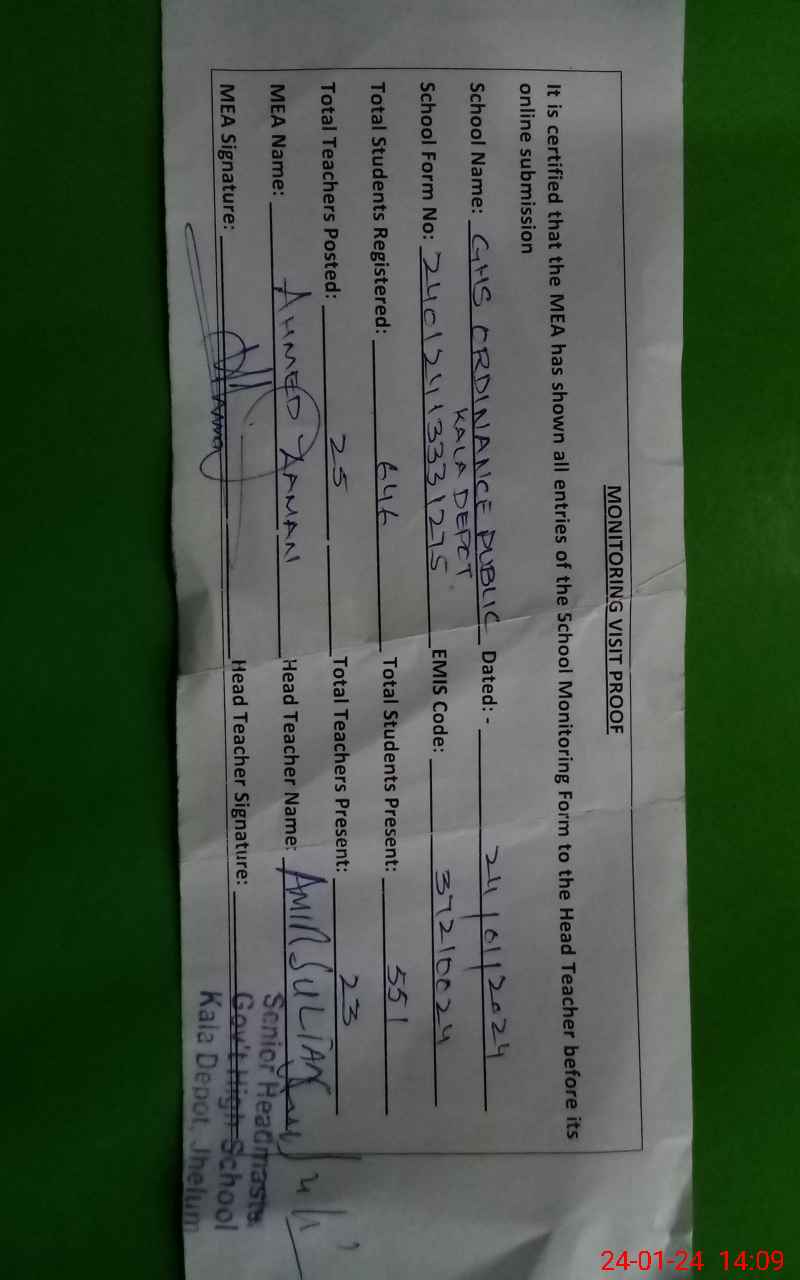 MONITORING VISIT PROOF
It is certified that the MEA has shown all entries of the School Monitoring Form to the Head Teacher before its
online submission
School Name: GHS ORDINANCE PUBLIC Dated: - 24/01/2024
KALA DEPOT
School Form No: 24012413331275 EMIS Code: 37210024
Total Students Registered: 646 Total Students Present: 551
Total Teachers Posted: 25 Total Teachers Present: 23
MEA Name: AHMED ZAMAN Head Teacher Name: AMIR SULTAN
MEA Signature: Head Teacher Signature:
Senior Headmaster
Gov't High School
Kala Depot, Jhelum
24-01-24 14:09